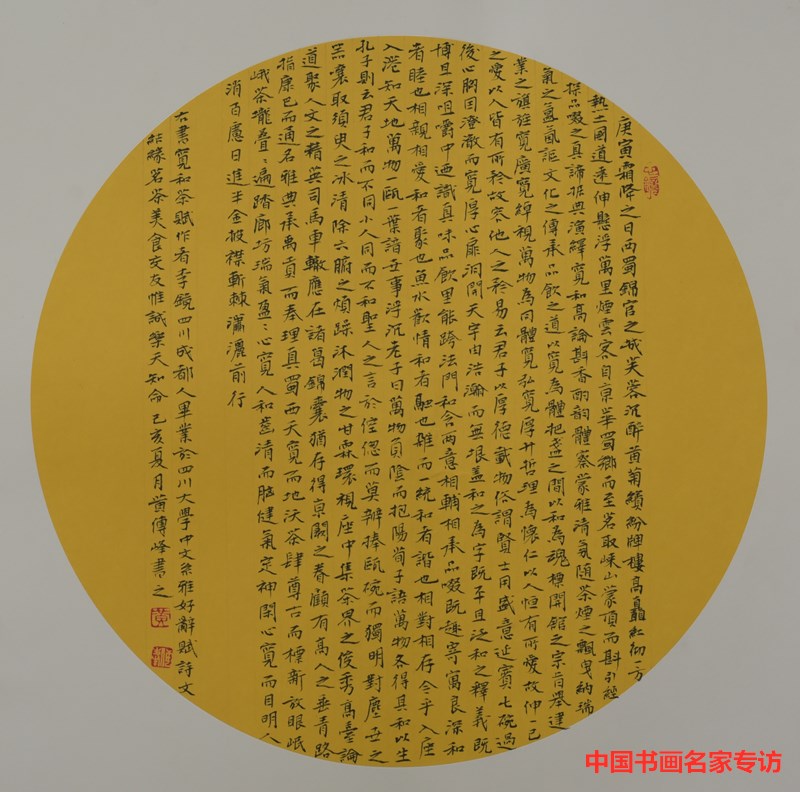 庚寅霜降之日西蜀錦官之城芙蓉沉醉黄菊繽紛牌樓高矗紅彻一方
熱土國道逶伸懸浮萬里煙雲客自京華蜀鄉而至茗取崍山蒙頂而斟引經
探品啜之真諦据典演繹寬和高論斟香酌韻體察蒙雅清氣随茶煙之飄曳納瑞
氣之氤氳謳文化之傳承品飲之道以寬為體把盞之間以和為魂標開館之宗旨舉建
業之旗旌寬廣寬綽視萬物為同體寬弘寬厚升哲理為懷仁以人恒有所愛故伸一己
之愛以人皆有所矜故容他人之矜易云君子以厚德載物俗謂賢士用盛意迎賓七碗過
後心胸因澄澈而寬厚心扉洞開天宇由浩瀚而無垠盖和之為字既平且泛和之釋義既
博且深咀嚼中通識真味品飲里能跨法門和合两意相輔相承品啜既趣寄寓良深和
者睦也相親相愛和者聚也魚水歡情和者融也雖而一統和者諧也相對相存今乎入座
入港知天地萬物一甌一葉諳世事浮沉老子曰萬物負陰而抱陽荀子語萬物各得其和以生
孔子則云君子和而不同小人同而不和聖人之言於倥偬而莫辨捧甌碗而獨明對塵世之
喧囂取須臾之冰清除六腑之煩躁沐潤物之甘霖環視座中集茶界之俊秀高臺論
道聚人文之精英司馬車轍應在諸葛錦囊猶存得京闕之眷顧有高人之垂青路
指康巴而通名雅典承禹貢而奉理真蜀西天寬而地沃茶肆尊古而標新放眼岷
峨茶壠叠叠遍踏廊坊瑞氣盈盈心寬人和齒清而脑健氣定神閑心寬而目明人
消百慮日進斗金披襟斬棘瀟灑前行
右書寬和茶賦作者李鏡四川成都人畢業於四川大學中文系雅好辭賦詩文
結緣茗茶美食交友惟誠樂天知命己亥夏月黄傳峰書之
中国书画名家专访